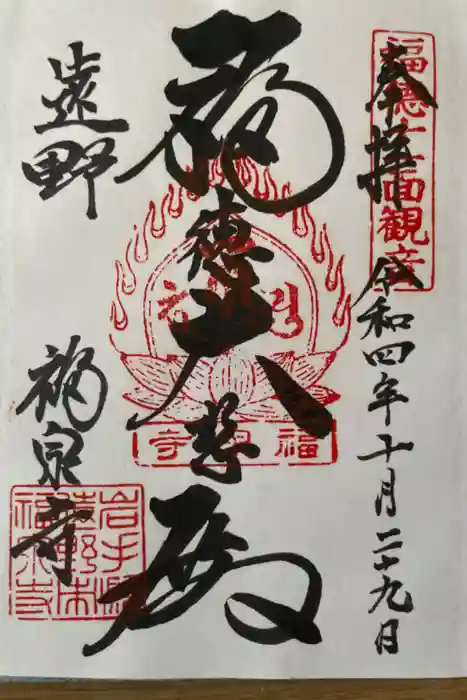 奉拝
令和四年十月二十九日
福徳十一面観音
福徳大悲殿
福泉寺
遠野
福泉寺
岩手県
遠野市
福泉寺